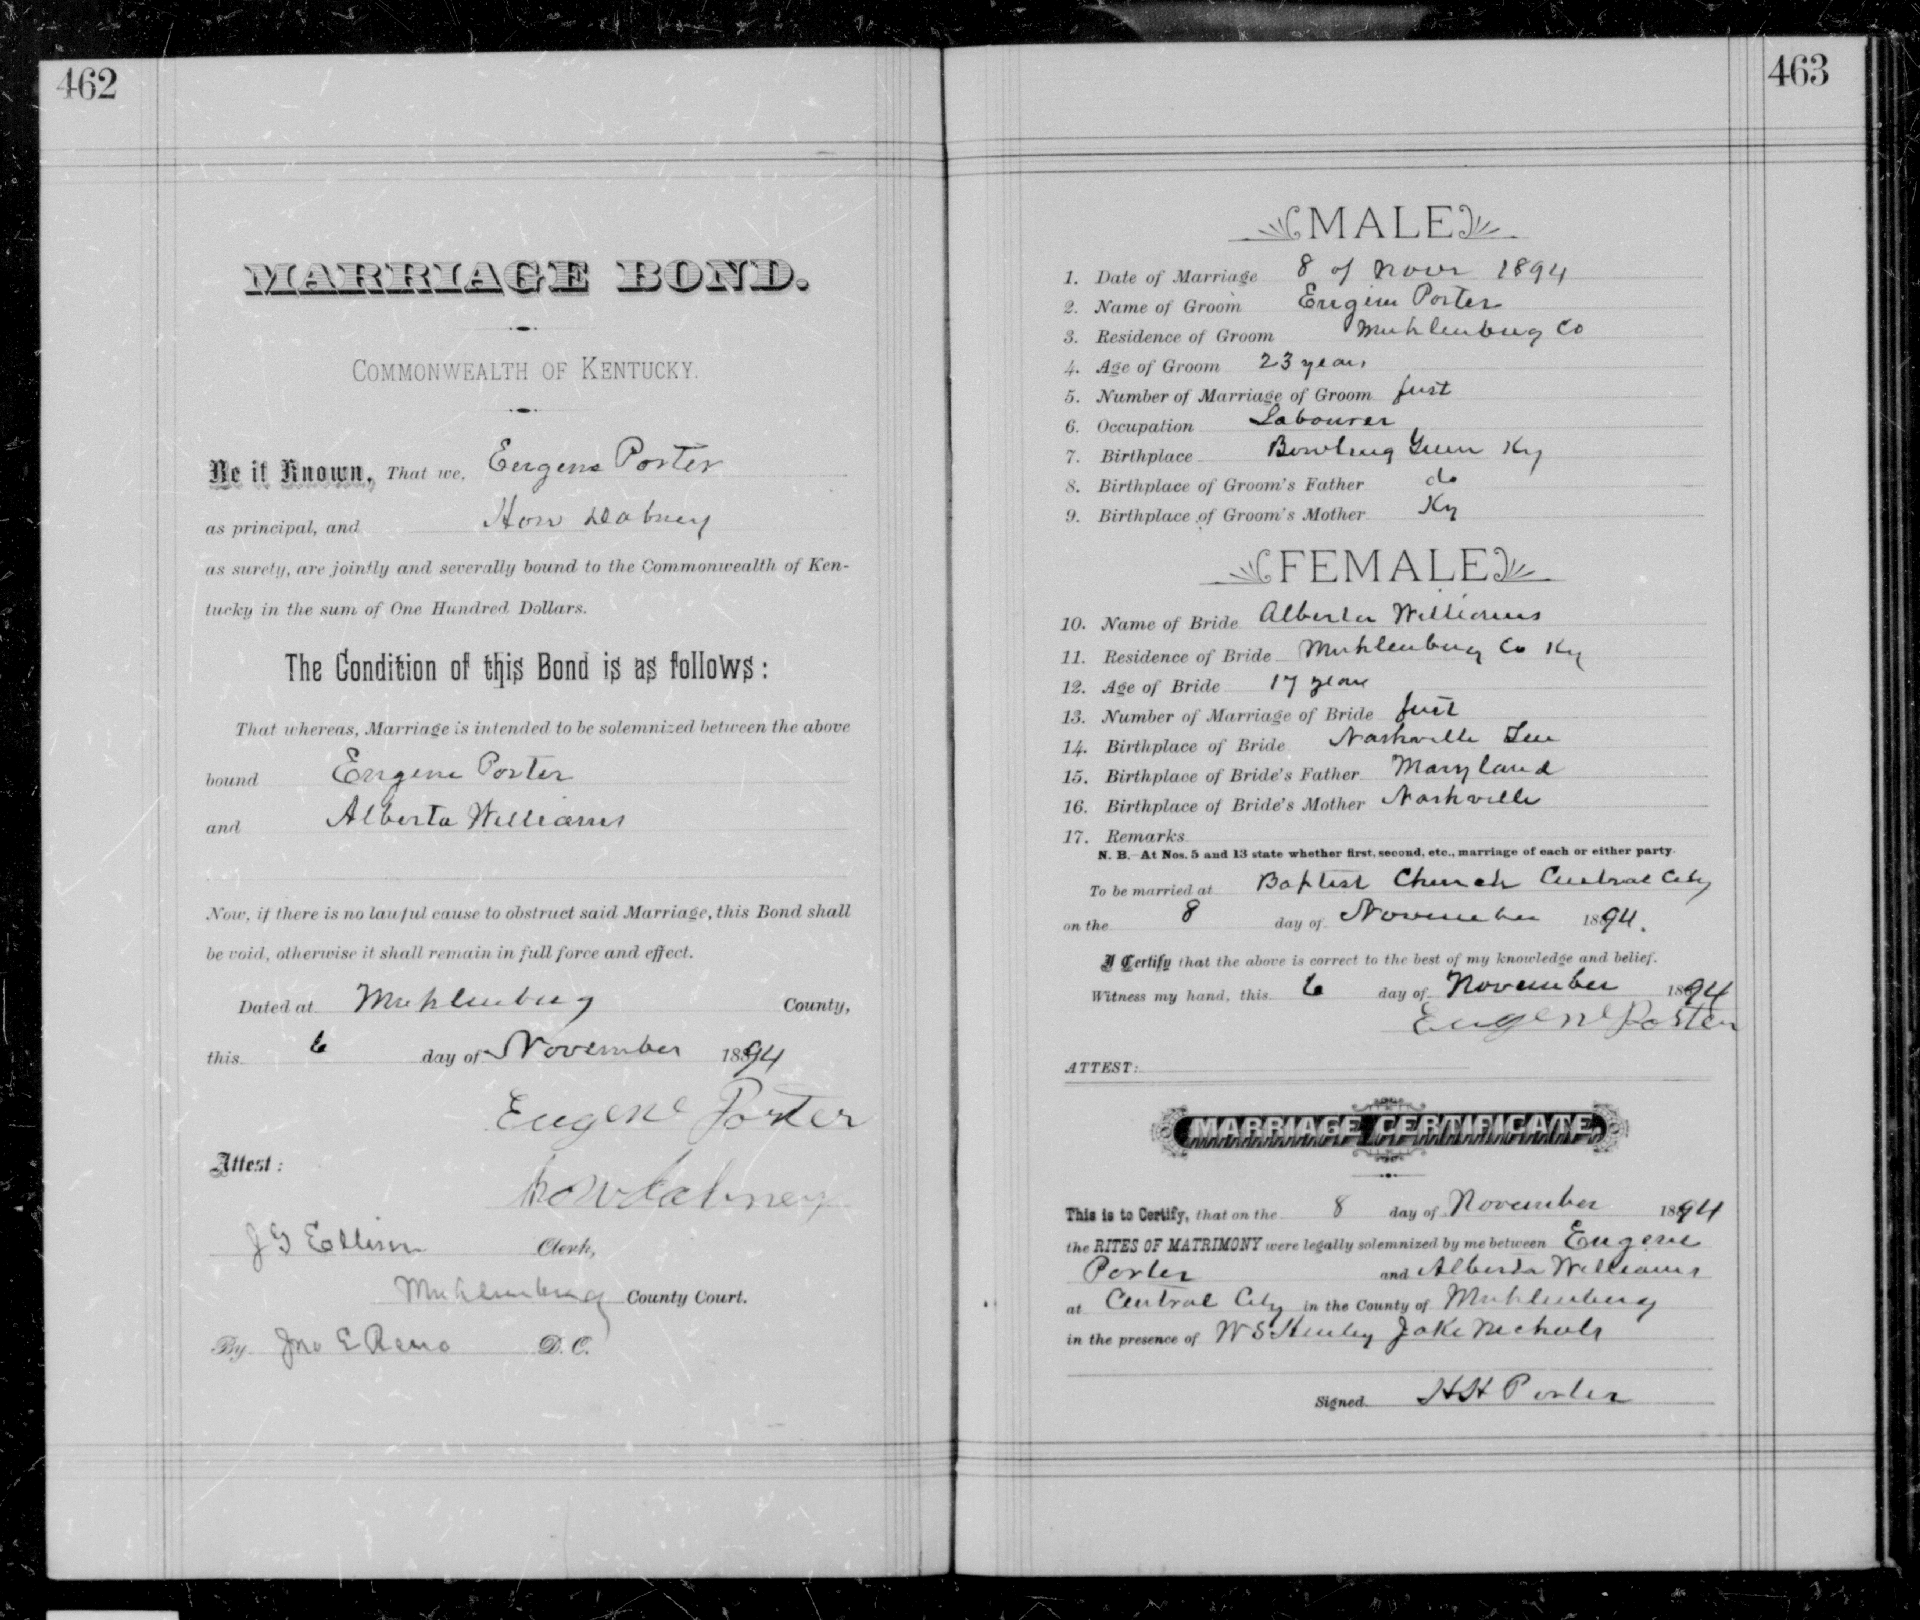 462
MARRIAGE BOND.
COMMONWEALTH OF KENTUCKY.
Be it Known, That we, Eugene Porter
as principal, and Dabney
as surety, are jointly and severally bound to the Commonwealth of Ken-
tucky in the sum of One Hundred Dollars.
The Condition of this Bond is as follows:
That whereas, Marriage is intended to be solemnized between the above
bound Eugene Porter
and Alberta Williams
Now, if there is no lawful cause to obstruct said Marriage, this Bond shall
be void, otherwise it shall remain in full force and effect.
Dated at Muhlenburg County,
this 6 day of November 1894
Eugene Porter
Attest:
Dabney
J G Ellison Clerk,
Muhlenburg County Court.
By Jno E Reno D. C.
463
MALE
1. Date of Marriage 8 of Novr 1894
2. Name of Groom Eugene Porter
3. Residence of Groom Muhlenburg Co
4. Age of Groom 23 years
5. Number of Marriage of Groom first
6. Occupation Labourer
7. Birthplace Bowling Green Ky
8. Birthplace of Groom's Father do
9. Birthplace of Groom's Mother Ky
FEMALE
10. Name of Bride Alberta Williams
11. Residence of Bride Muhlenburg Co Ky
12. Age of Bride 17 years
13. Number of Marriage of Bride first
14. Birthplace of Bride Nashville Ten
15. Birthplace of Bride's Father Maryland
16. Birthplace of Bride's Mother Nashville
17. Remarks
N. B.—At Nos. 5 and 13 state whether first, second, etc., marriage of each or either party.
To be married at Baptist Church Central City
on the 8 day of November 1894.
I Certify that the above is correct to the best of my knowledge and belief.
Witness my hand, this 6 day of November 1894
Eugene Porter
ATTEST:
MARRIAGE CERTIFICATE
This is to Certify, that on the 8 day of November 1894
the RITES OF MATRIMONY were legally solemnized by me between Eugene
Porter and Alberta Williams
at Central City in the County of Muhlenburg
in the presence of W S Jake Nichols
Signed H H Porter